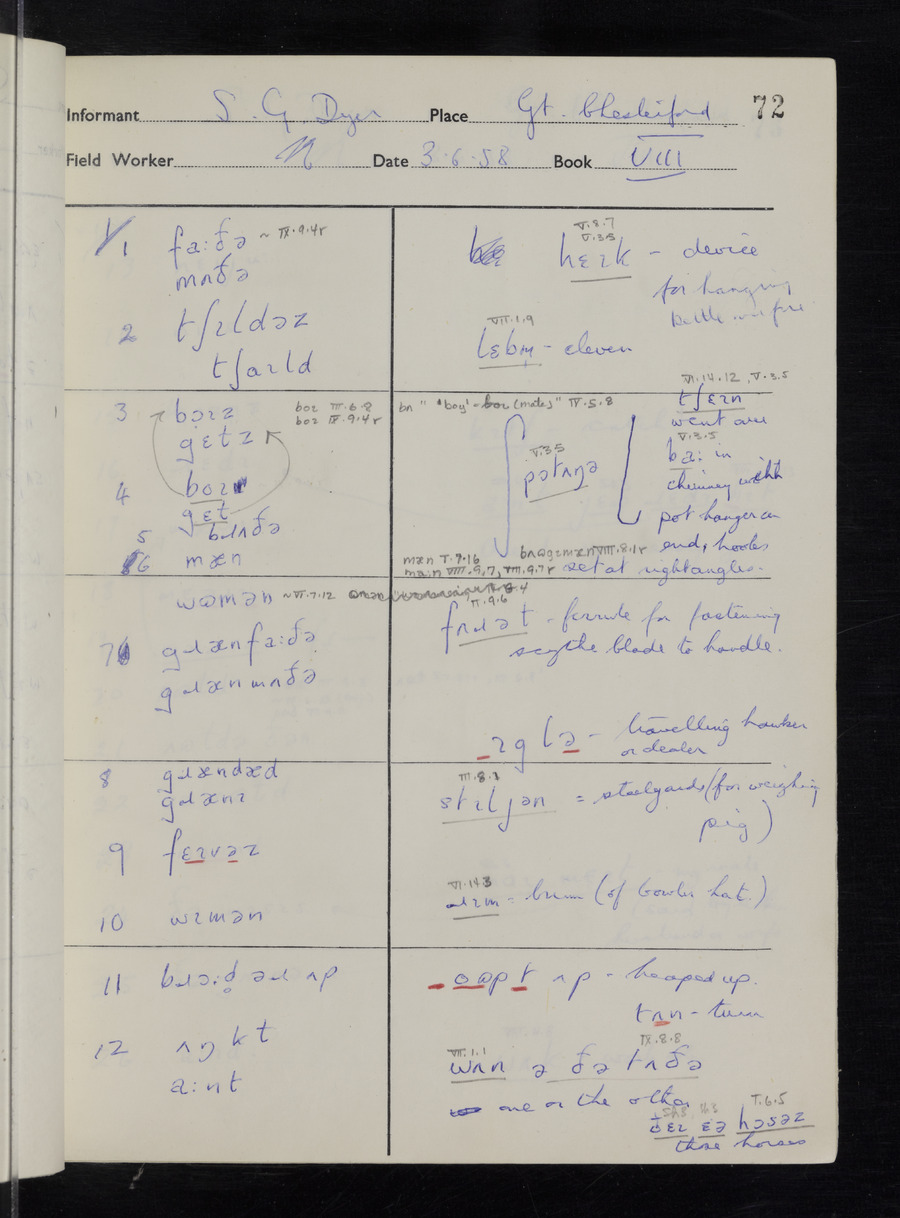 Informant S. G. Dyer Place Gt. Chesterford 72
Field Worker N Date 3·6·58 Book VIII
1 fa:ðə ~ IX·9·4r
mʌðə
2 tʃɪldəz
tʃaɪld
3 bɔɪz boɪ III·6·8
gɛtz boɪ IX·9·4r
4 boɪ
gɛt
5 bɹʌðə
6 mæn
wɷmən ~VI·7·12
7 gɹænfa:ðə
gɹænmʌðə
8 gɹændæd
gɹænɪ
9 fɛɪvəz
10 wɪmən
11 bɹɔ:ḍ əɹ ʌp
12 ʌŋkt
a:nt
V·8·7
V·3·5
hɛɪk – device
for hanging
kettle over fire
VII·1·9
lɛbm̩ – eleven
"boy" – boɪ (mates) IV·5·8
VI·14·12, V·3·5
tʃɛɪn
went over
V·3·5
pɔtʌŋə
V·3·5
ba: in
chimney with
pot hanger on
end, hooks
set at right angles.
mæn V·7·16
main VIII·9·7, VIII·9·7r
VIII·8·1r
II·9·6
fʌɹət – ferrule for fastening
scythe blade to handle.
ɪglə – travelling hawker
or dealer
III·8·1
stɪljən = steelyards (for weighing
pig)
VI·14·3
ɹɪm – brim (of bowler hat.)
oɷpt ʌp – heaped up.
tʌn – turn
VII·1·1 IX·8·8
wʌn ə ðə tʌðə
one or the other
V·6·5
ðɛɪ ɛə hɔsəz
those horses